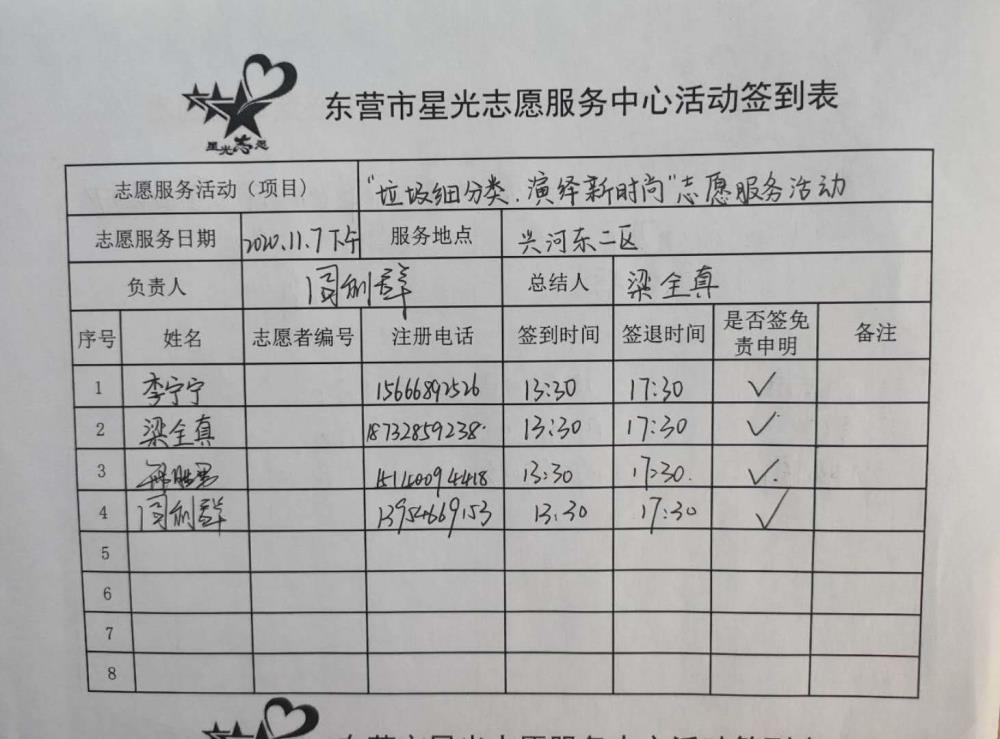 星光志愿
东营市星光志愿服务中心活动签到表
志愿服务活动（项目） "垃圾细分类.演绎新时尚"志愿服务活动
志愿服务日期 2020.11.7下午 服务地点 兴河东二区
负责人 周利群 总结人 梁全真
序号 姓名 志愿者编号 注册电话 签到时间 签退时间 是否签免责申明 备注
1 李宁宁 15666892526 13:30 17:30 ✓
2 梁全真 18732859238 13:30 17:30 ✓
3 15140094418 13:30 17:30. ✓
4 周利群 13954669153 13.30 17:30 ✓
5
6
7
8
东营市星光志愿服务中心活动签到表